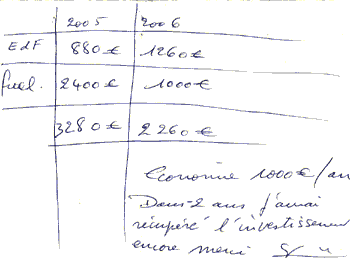 2005 2006
EdF 880€ 1260€
fuel. 2400€ 1000€
3280€ 2260€
Economie 1000€/an
Dans 2 ans j'aurai
récupéré l'investissement
encore merci